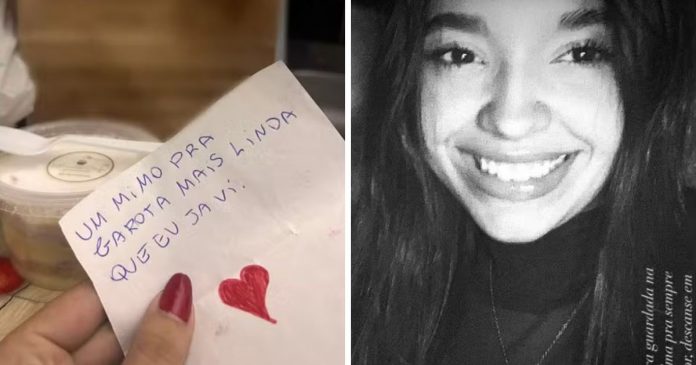 UM MIMO PRA
GAROTA MAIS LINDA
QUE EU JA VI.
guardada na
ma pra sempre
or, descanse em